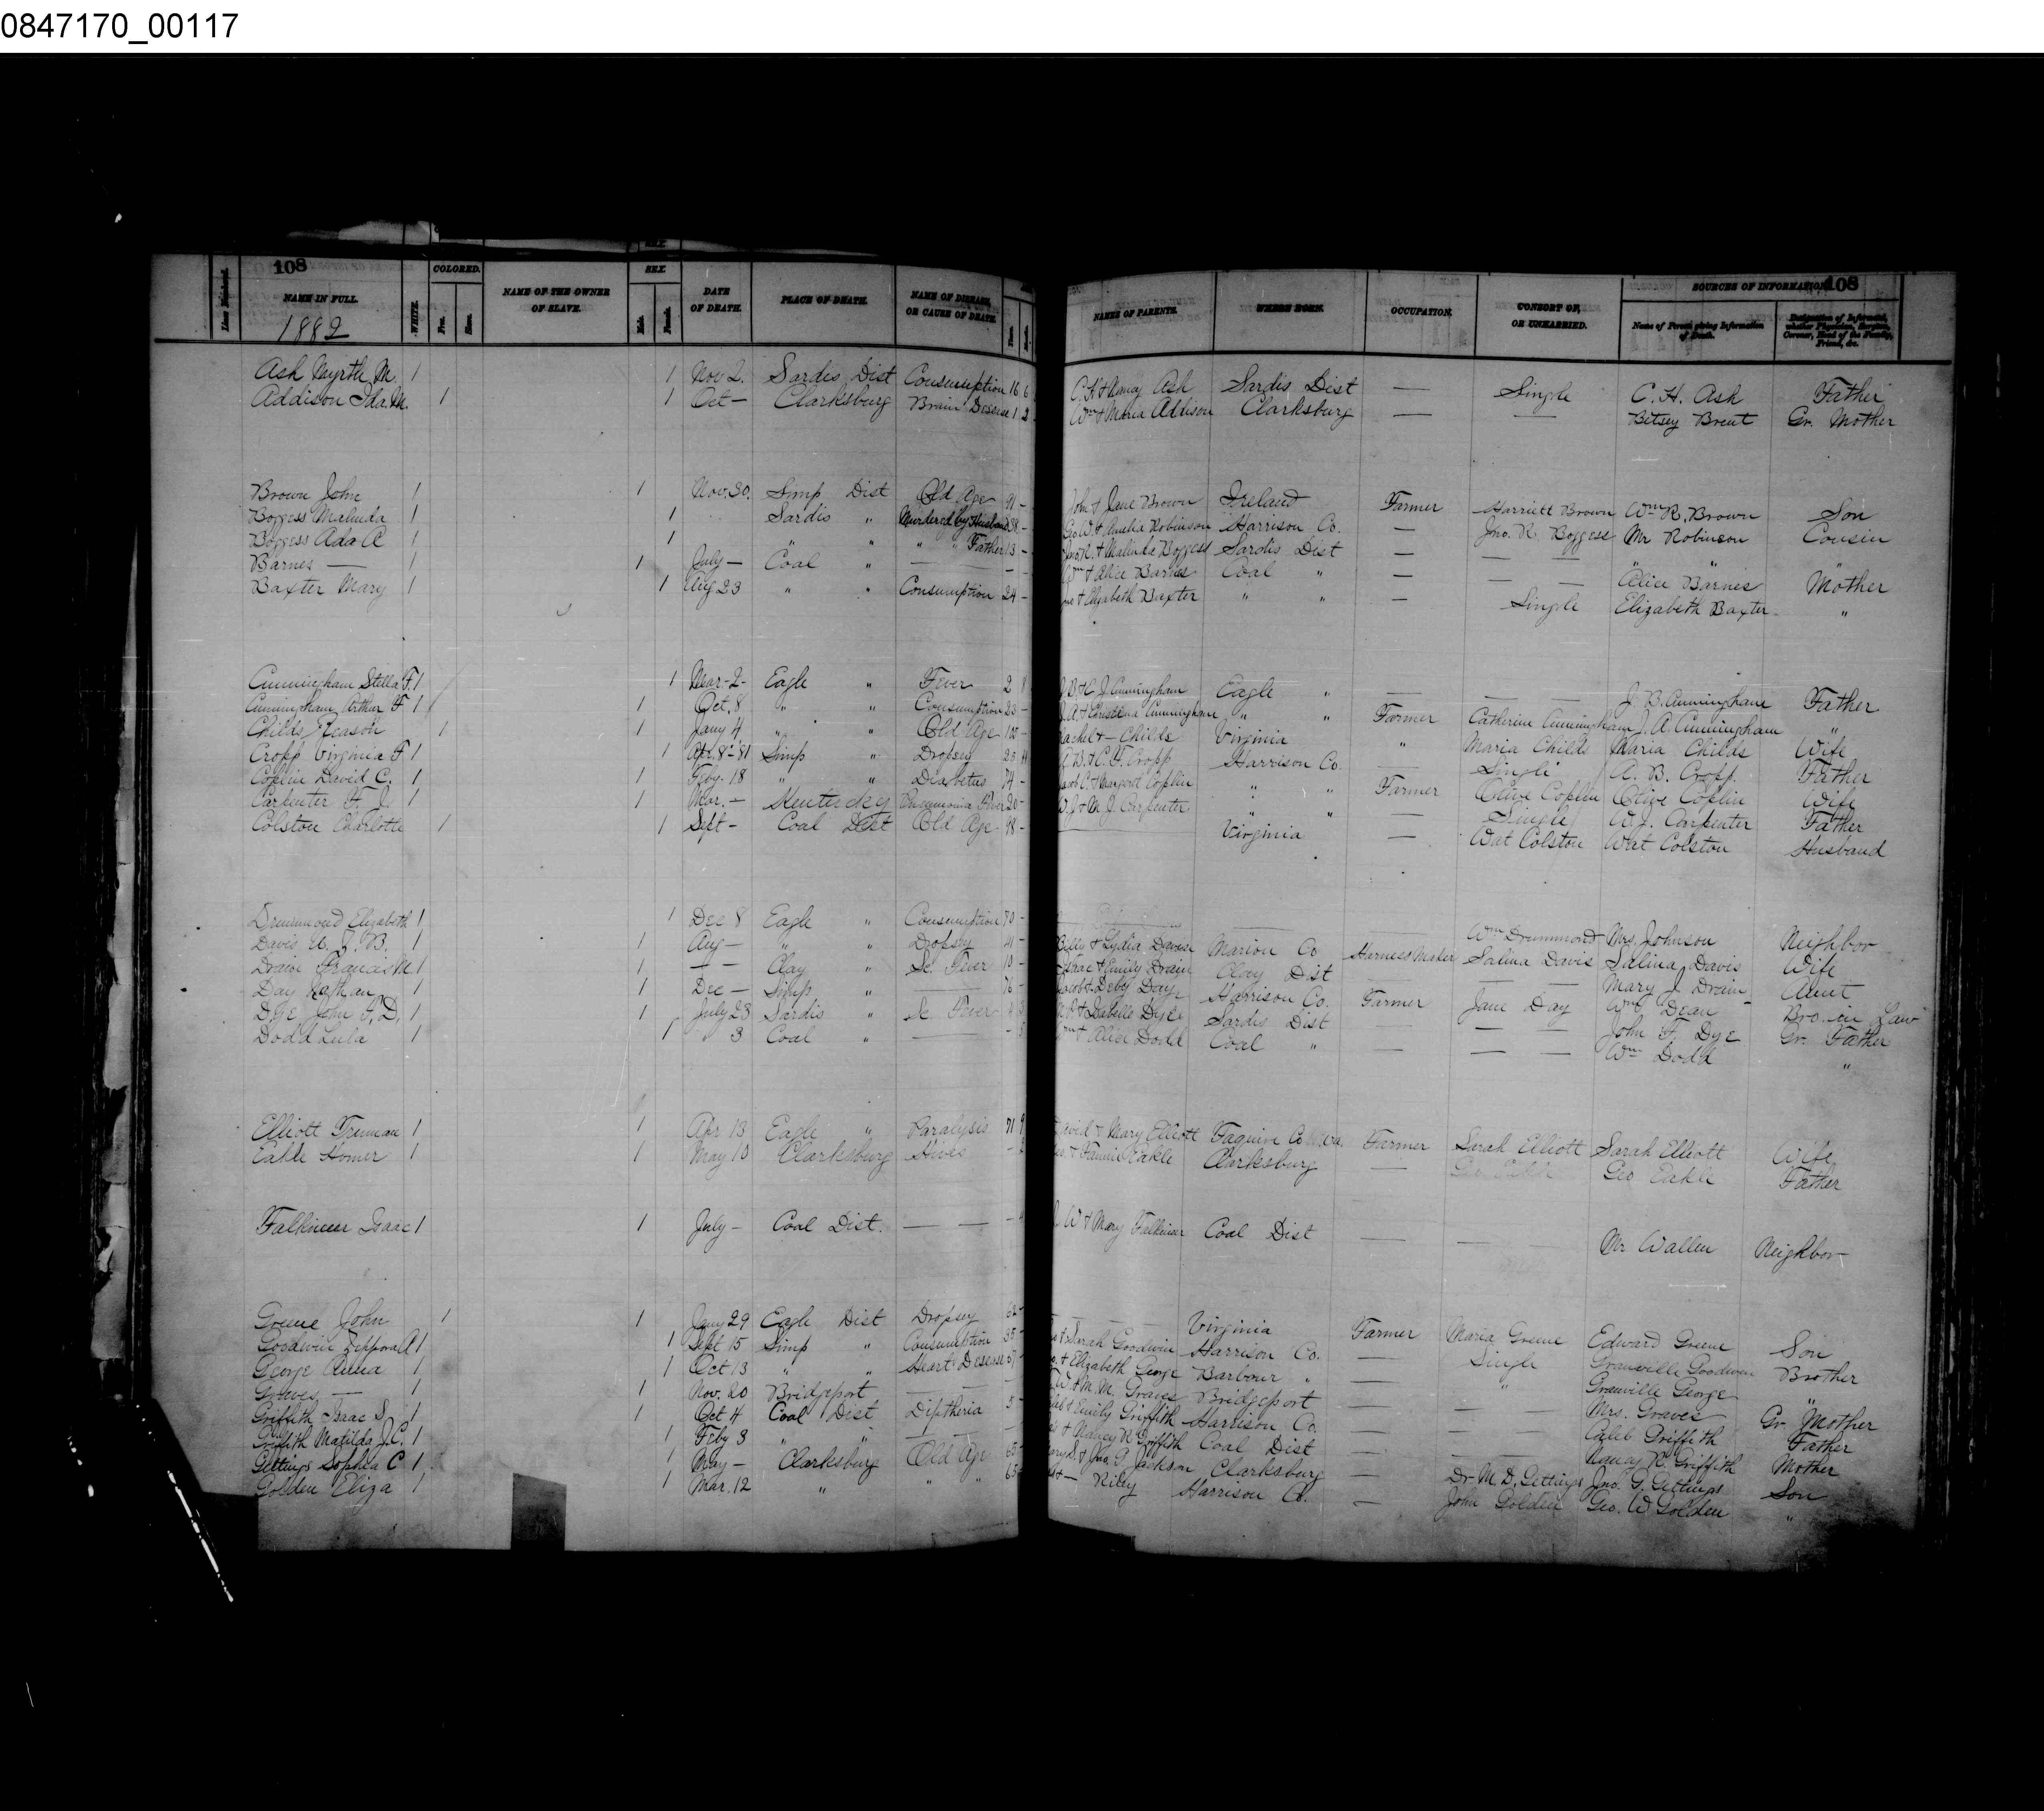 0847170_00117
108
NAME IN FULL.
1882
WHITE.
COLORED.
Free.
Slave.
NAME OF THE OWNER OF SLAVE.
SEX.
Male.
Female.
DATE OF DEATH.
PLACE OF DEATH.
NAME OF DISEASE, OR CAUSE OF DEATH.
Years.
NAMES OF PARENTS.
WHERE BORN.
OCCUPATION.
CONSORT OF, OR UNMARRIED.
SOURCES OF INFORMATION.
108
Name of Person giving Information of Death.
Designation of Informant, whether Physician, Surgeon, Coroner, Head of the Family, Friend, &c.
Ash Myrtle M. 1 1 Nov 2. Sardis Dist Consumption 16 6 C. H. & Nancy Ash Sardis Dist — Single C. H. Ash Father
Addison Ida. M. 1 1 Oct — Clarksburg Brain Disease 1 2 Wm & Maria Addison Clarksburg — — Betsey Brent Gr. Mother
Brown John 1 1 Nov. 30. Simp Dist Old Age 91 - John & Jane Brown Ireland Farmer Harriett Brown Wm R. Brown Son
Boggess Malinda 1 1 Sardis " Murdered by Husband 38 - Geo W. & Amelia Robinson Harrison Co. — Jno. R. Boggess Mr Robinson Cousin
Boggess Ada A 1 1 " " " " Father 13 - Jno R. & Malinda Boggess Sardis Dist — — — " "
Barnes — 1 1 July — Coal " — — Wm & Alice Barnes Coal " — — — Alice Barnes Mother
Baxter Mary 1 1 Aug 23 " " Consumption 24 - & Elizabeth Baxter " " — Single Elizabeth Baxter "
Cunningham Stella F. 1 1 Mar - 2 - Eagle " Fever 2 8 J. B. & C. J. Cunningham Eagle " — — J. B. Cunningham Father
Cunningham Arthur F 1 1 Oct. 8 " " Consumption 23 - J. A. & Christena Cunningham " " Farmer Catherine Cunningham J. A. Cunningham "
Childs Reason 1 1 Jany 4 " " Old Age 105 - Rachel & — Childs Virginia " Maria Childs Maria Childs Wife
Cropp Virginia F 1 1 Apr. 8th - 81 Simp " Dropsy 25 4 A. B. & C. F. Cropp Harrison Co. — Single A. B. Cropp. Father
Coplin David C. 1 1 Feby. 18 " " Diabetus 74 - Jacob C. & Margaret Coplin " " Farmer Olive Coplin Olive Coplin Wife
Carpenter F. J. 1 1 Mar. — Kentucky Pneumonia Fever 20 - W. J. & M. J. Carpenter " " — Single W. J. Carpenter Father
Colston Charlotte 1 1 Sept — Coal Dist Old Age 98 - — Virginia — Wat Colston Wat Colston Husband
Drummond Elizabeth 1 1 Dec 8 Eagle " Consumption 70 - Wm Drummond Mrs. Johnson Neighbor
Davis U. J. B. 1 1 Aug — " " Dropsy 41 - Billy & Lydia Davis Marion Co Harness Maker Salina Davis Salina Davis Wife
Drain Francis M 1 1 — — Clay " Sc. Fever 10 - Isaac & Emily Drain Clay Dist — — Mary J. Drain Aunt
Day Nathan 1 1 Dec — Simp " — 76 - Jacob & Deby Day Harrison Co. Farmer Jane Day Wm Dean Bro. in Law
Dye John F. D. 1 1 July 28 Sardis " Sc Fever & Isabelle Dye Sardis Dist — — — John F. Dye Gr. Father
Dodd Lula 1 1 " 3 Coal " — Wm & Alice Dodd Coal " — — — Wm Dodd "
Elliott Truman 1 1 Apr 13 Eagle " Paralysis 71 9 David & Mary Elliott Faquire Co Farmer Sarah Elliott Sarah Elliott Wife
Eakle Homer 1 1 May 10 Clarksburg Hives & Fannie Eakle Clarksburg — Geo Eakle Geo Eakle Father
Falkiner Isaac 1 1 July — Coal Dist. — — W & Mary Falkiner Coal Dist — — — Mr. Wallen Neighbor
Greene John 1 1 Jany 29 Eagle Dist Dropsy 62 - — — Virginia Farmer Maria Greene Edward Greene Son
Goodwin Zeppora A 1 1 Sept 15 Simp " Consumption 38 - & Sarah Goodwin Harrison Co. — Single Granville Goodwin Brother
George Anna 1 1 Oct 13 " " Heart Desease 57 - & Elizabeth George Barbour " — " Granville George "
Graves — 1 1 Nov. 20 Bridgeport — — & M. M. Graves Bridgeport — — — Mrs. Graves Gr. Mother
Griffith Isaac S. 1 1 Oct 4 Coal Dist Diptheria 5 - & Emily Griffith Harrison Co. — — — Caleb Griffith Father
Griffith Matilda J. C. 1 1 Feby 3 " " — — & Nancy R. Griffith Coal Dist — — — Nancy R. Griffith Mother
Gittings Sophia C 1 1 May — Clarksburg Old Age 65 - & Jno. G. Jackson Clarksburg — Dr. M. D. Gittings Jno. G. Gittings Son
Golden Eliza 1 1 Mar. 12 " " " 65 - & — Riley Harrison Co. — John Golden Geo. W Golden "